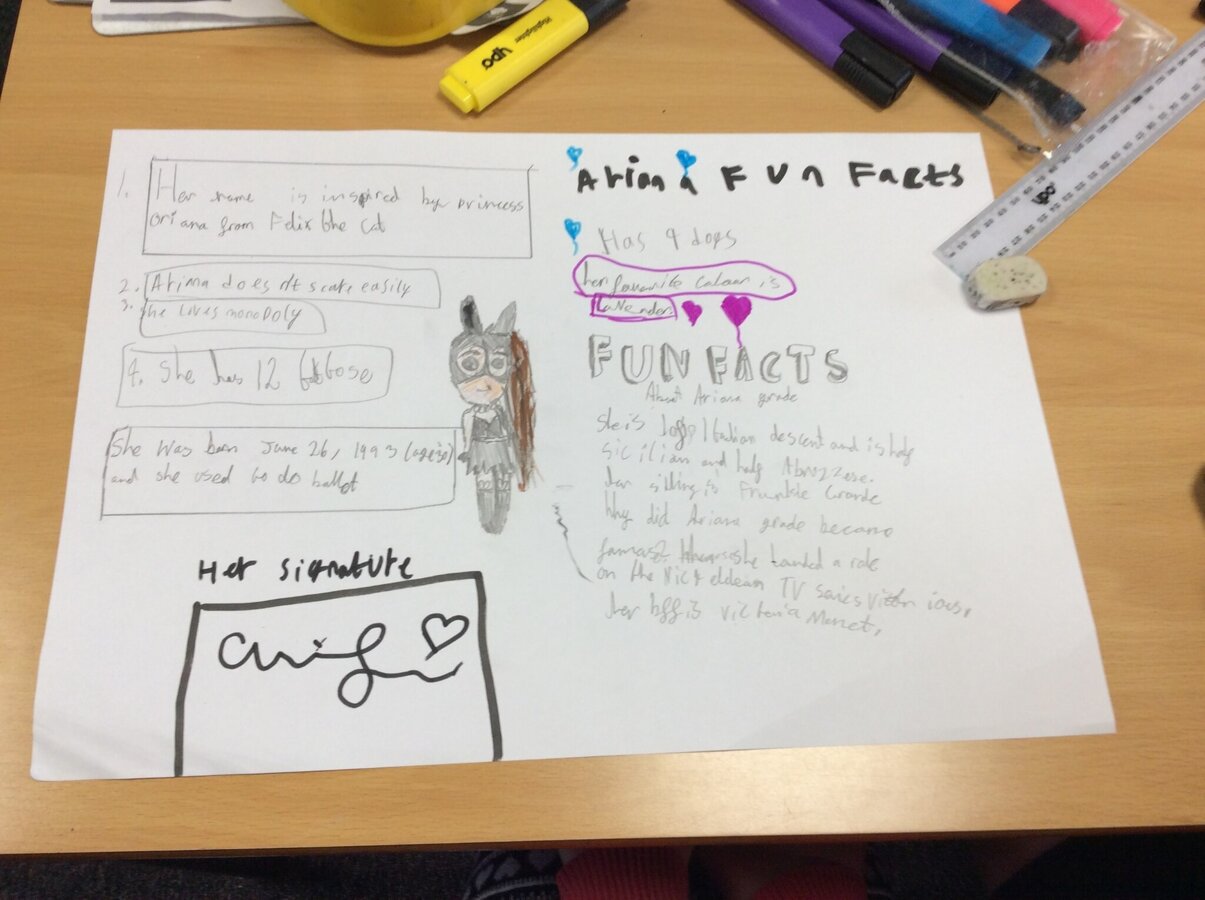 1.
Her name is inspired by princess
oriana from Felix the cat
2. Ariana does nt scare easily
3. She Lives monopoly
4. She has 12 tatoose
She was born June 26, 1993
and she used to do ballet
Her signature
Ariana Fun Facts
Has 9 dogs
her favourite Colour is
Lavender
FUN FACTS
About Ariana grade
She is Italian descent and is half
sicilian and half Abruzzese.
Her sibling is Frankie Grande
Why did Ariana grade become
famous? she landed a role
on the TV series Victorious.
Her bff is victoria Monet.
ypo
Highlighter
ypo